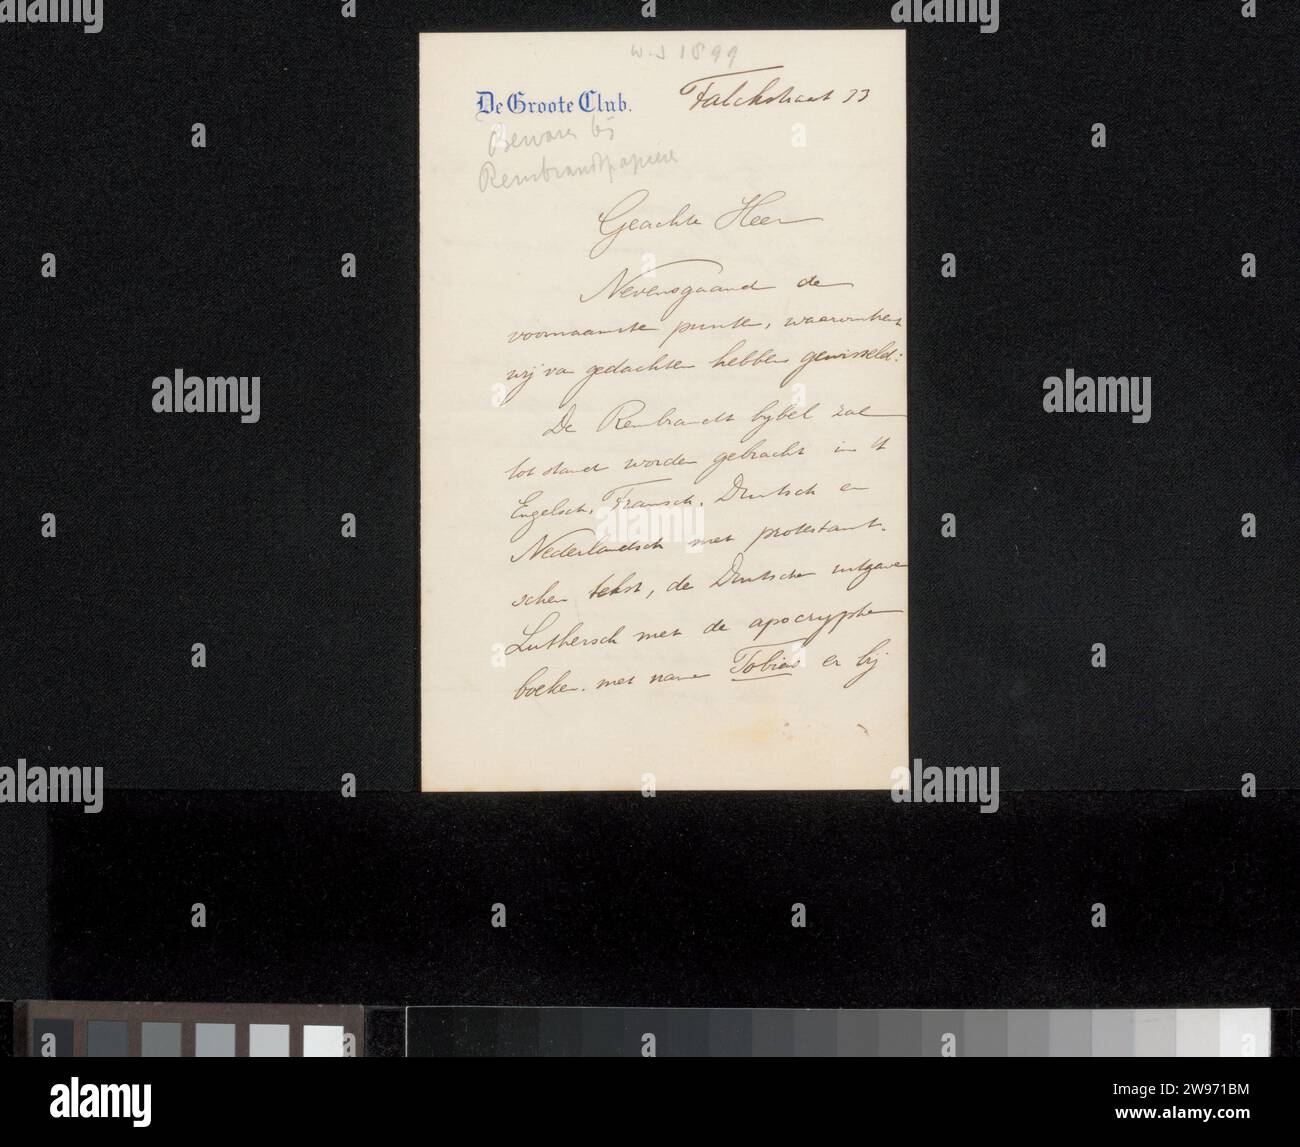 W-J 1899
De Groote Club.
Falckstraat 33
Bewaren bij
Rembrandtpapieren
Geachte Heer
Nevensgaand de
voornaamste punten, waaromtrent
wij van gedachten hebben gewisseld:
De Rembrandt bijbel zal
tot stand worden gebracht in 't
Engelsch, Fransch, Duitsch en
Nederlandsch met protestant-
schen tekst, de Duitsche uitgave
Luthersch met de apocryphe
boeken. met name Tobias en bij
alamy
www.alamy.com
2W971BM